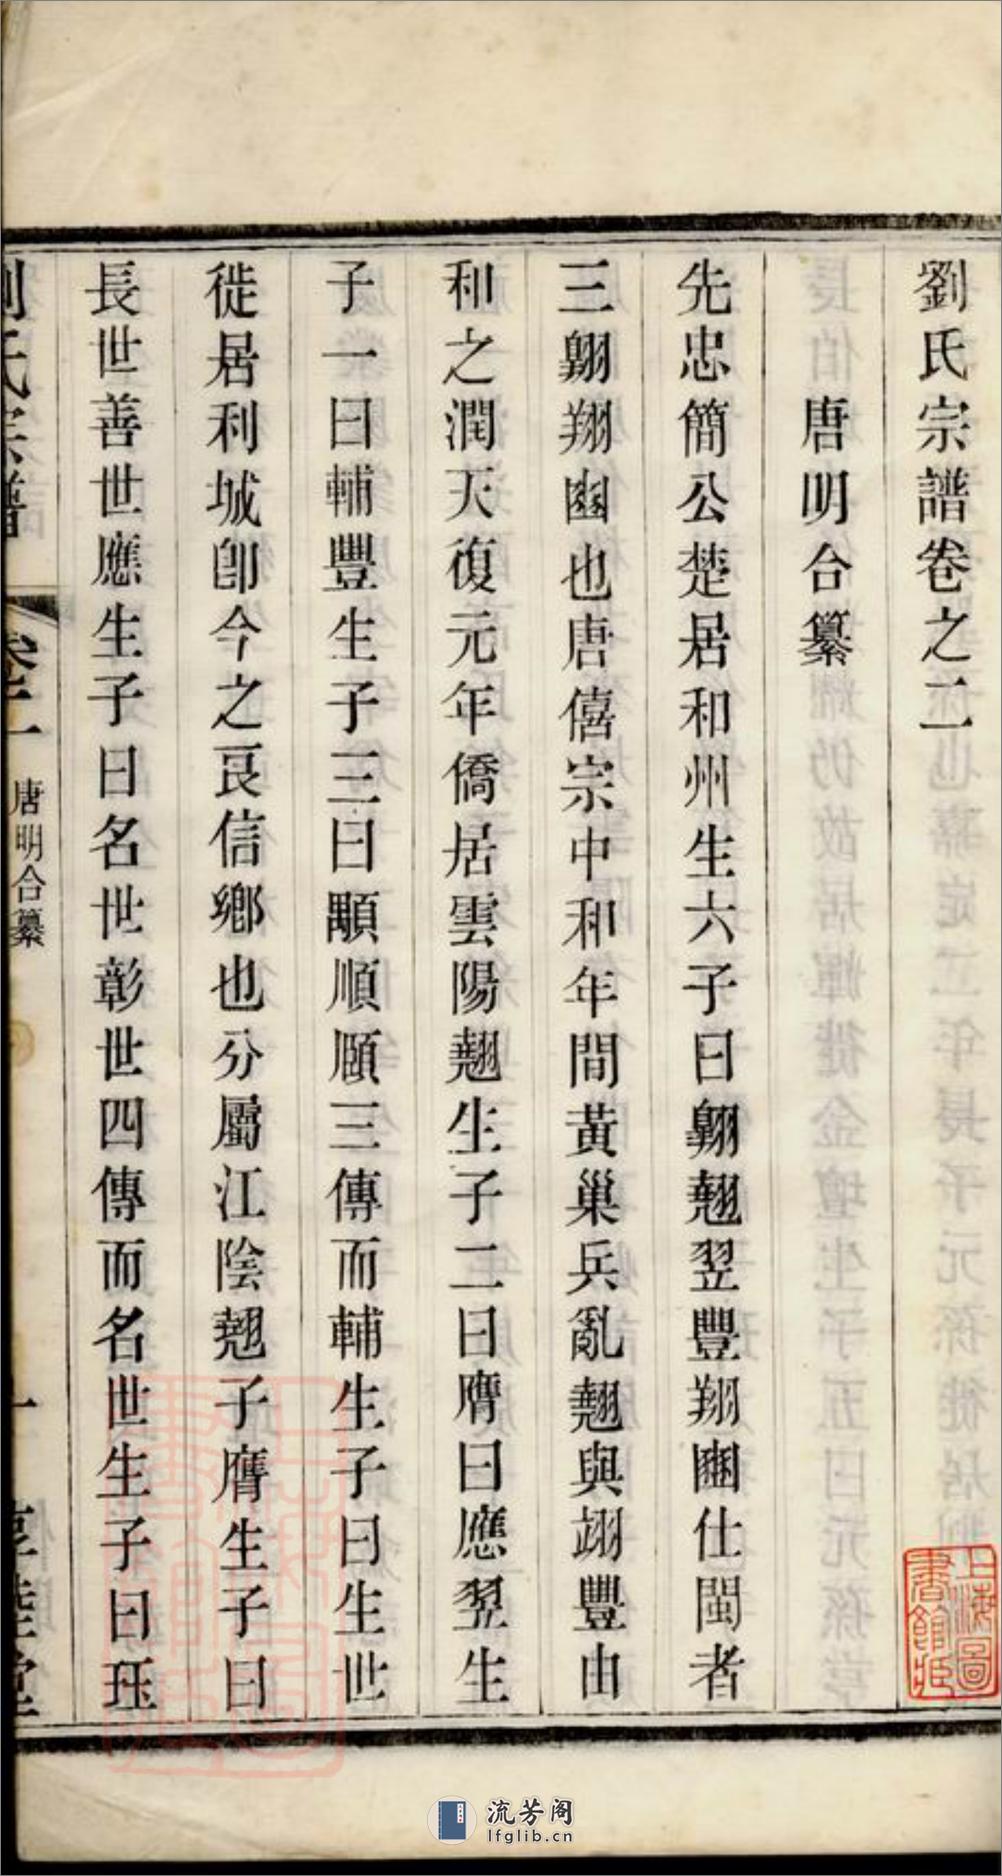 劉氏宗譜卷之二
唐明合纂
先忠簡公楚居和州生六子曰翺翹翌豐翔豳仕閩者
三翺翔豳也唐僖宗中和年間黃巢兵亂翹與翊豐由
和之潤天復元年僑居雲陽翹生子二曰膺曰應翌生
子一曰輔豐生子三曰顒順頤三傳而輔生子曰生世
徙居利城卽今之良信鄉也分屬江陰翹子膺生子曰
長世善世應生子曰名世彰世四傳而名世生子曰珏
劉氏宗譜
卷二
唐明合纂
一
上海圖書館藏
流芳阁
lfglib.cn